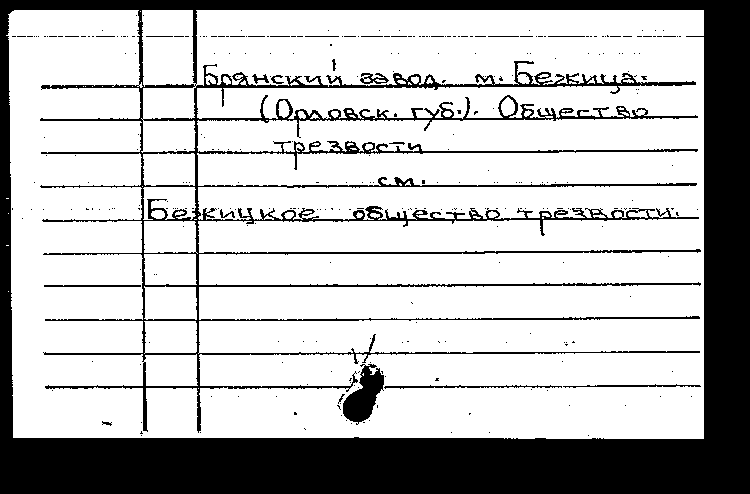 Брянский завод. м. Бежица.
(Орловск. губ.). Общество
трезвости
см.
Бежицкое общество трезвости.